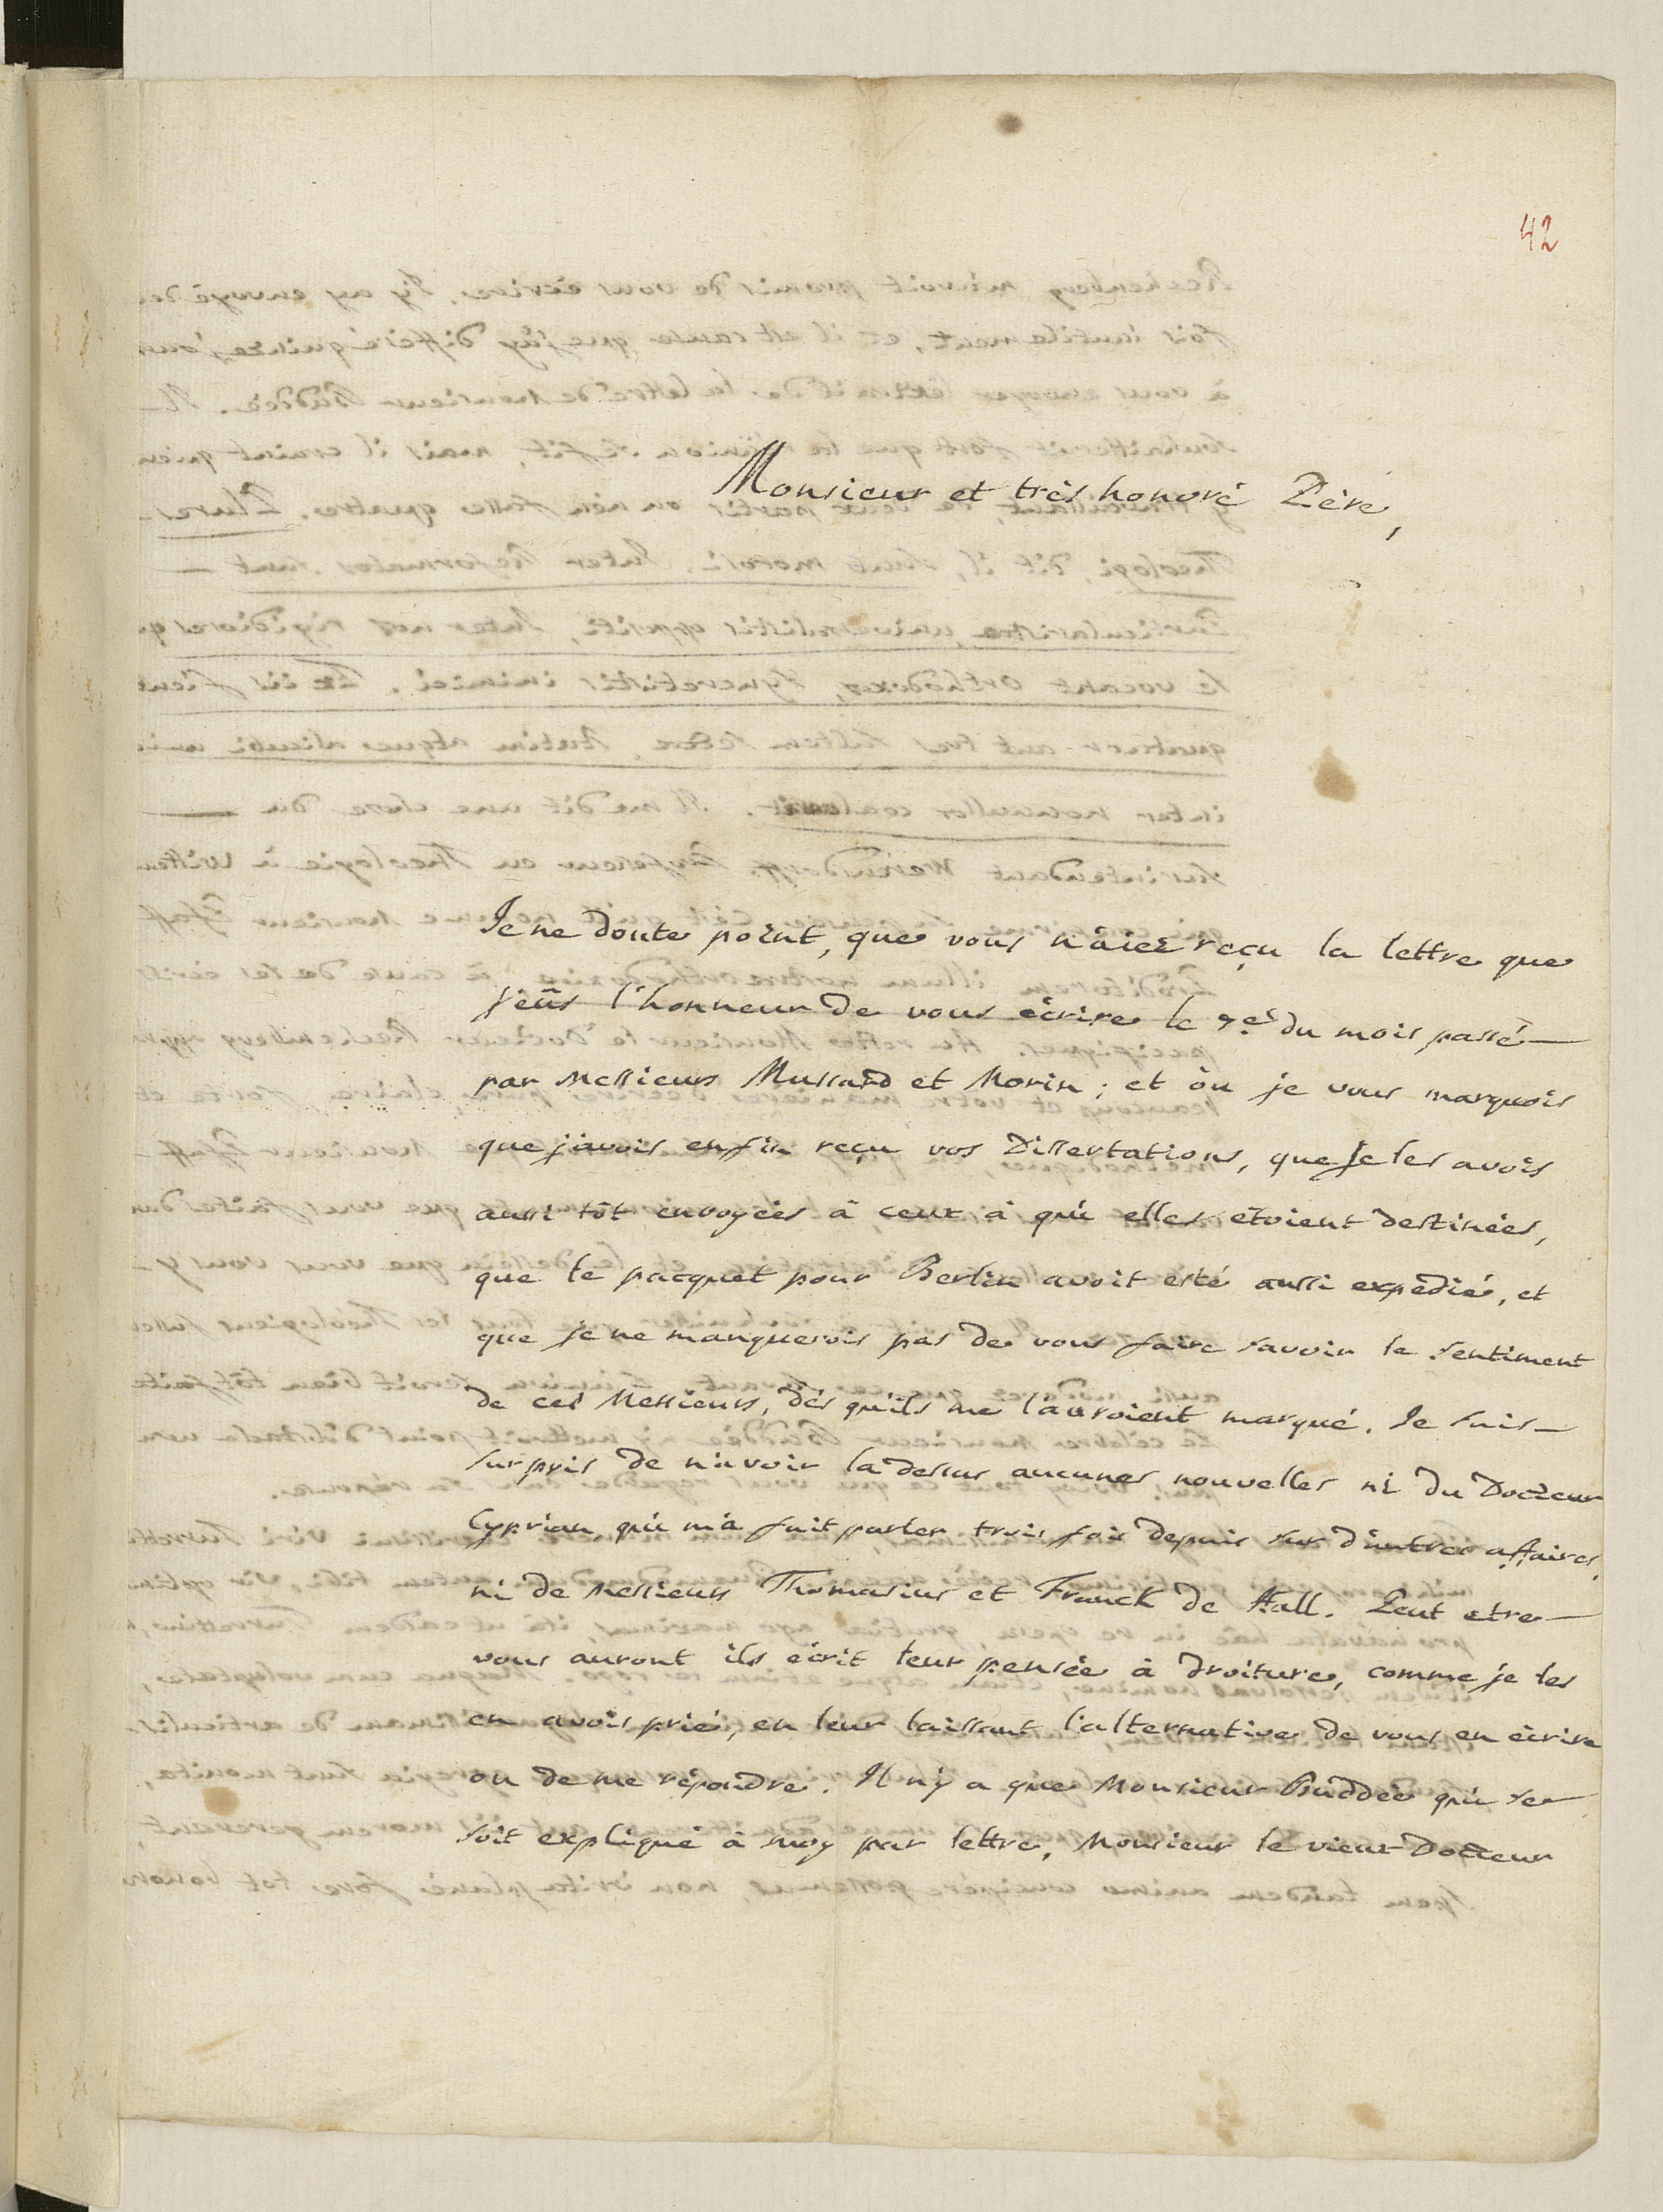 42
Monsieur et très honoré Père,
Je ne doute point, que vous n'äiez reçu la lettre que
j'eüs l'honneur de vous écrire le 7e du mois passé —
par Messieurs Mussard et Morin; et öu je vous marquois
que j'avois enfin reçu vos Dissertations, que Je les avois
aussi tôt envoyées à ceux à qui elles etoient destinées,
que le pacquet pour Berlin avoit esté aussi expedié, et
que je ne manquerois pas de vous faire savoir le sentiment
de ces Messieurs, dés qu'ils me l'auroient marqué. Je suis —
surpris de n'avoir la dessus aucunes nouvelles ni du Docteur
Cyprian qui m'a fait parler trois fois depuis sur d'autres affaires,
ni de Messieurs Thomasius et Franck de Hall. Peut etre —
vous auront ils écrit leur pensée à droiture, comme je les
en avois prié, en leur laissant l'alternative de vous en écrire
ou de me répondre. Il n'y a que Monsieur Buddée qui se
soit expliqué à moy par lettre, Monsieur le vieux Docteur